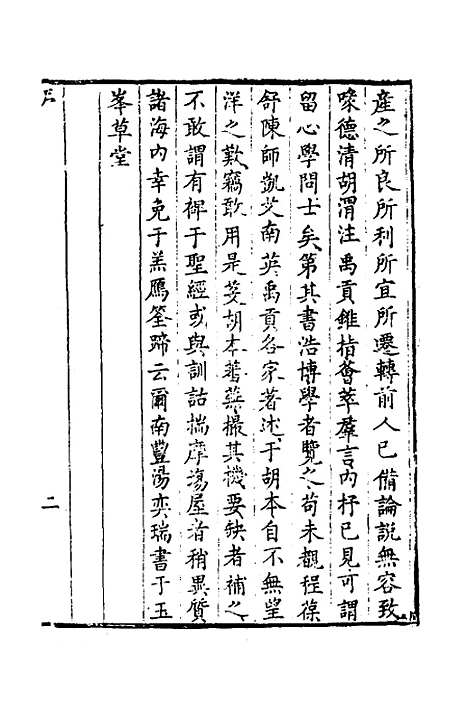 產之所良所利所宜所遷轉前人已備論說無容致
喙德清胡渭注禹貢錐指薈萃羣言內杼已見可謂
留心學問士矣第其書浩博學者覽之苟未觀程葆
舒陳師凱艾南英禹貢各家著述于胡本自不無望
洋之歎竊敢用是芟胡本蕃蕪撮其機要缺者補之
不敢謂有裨于聖經或與訓詁揣摩塲屋者稍異質
諸海內幸免于羔鴈筌蹄云爾南豐湯奕瑞書于玉
峯草堂
二